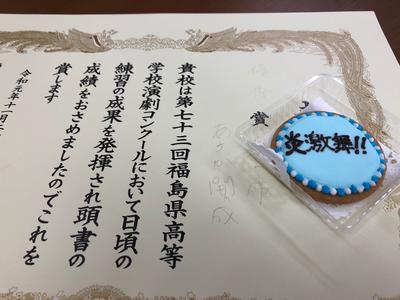 賞
貴校は第七十三回福島県高等
学校演劇コンクールにおいて日頃の
練習の成果を発揮され頭書の
成績をおさめましたのでこれを
賞します
令和元年十一月
炎激舞!!